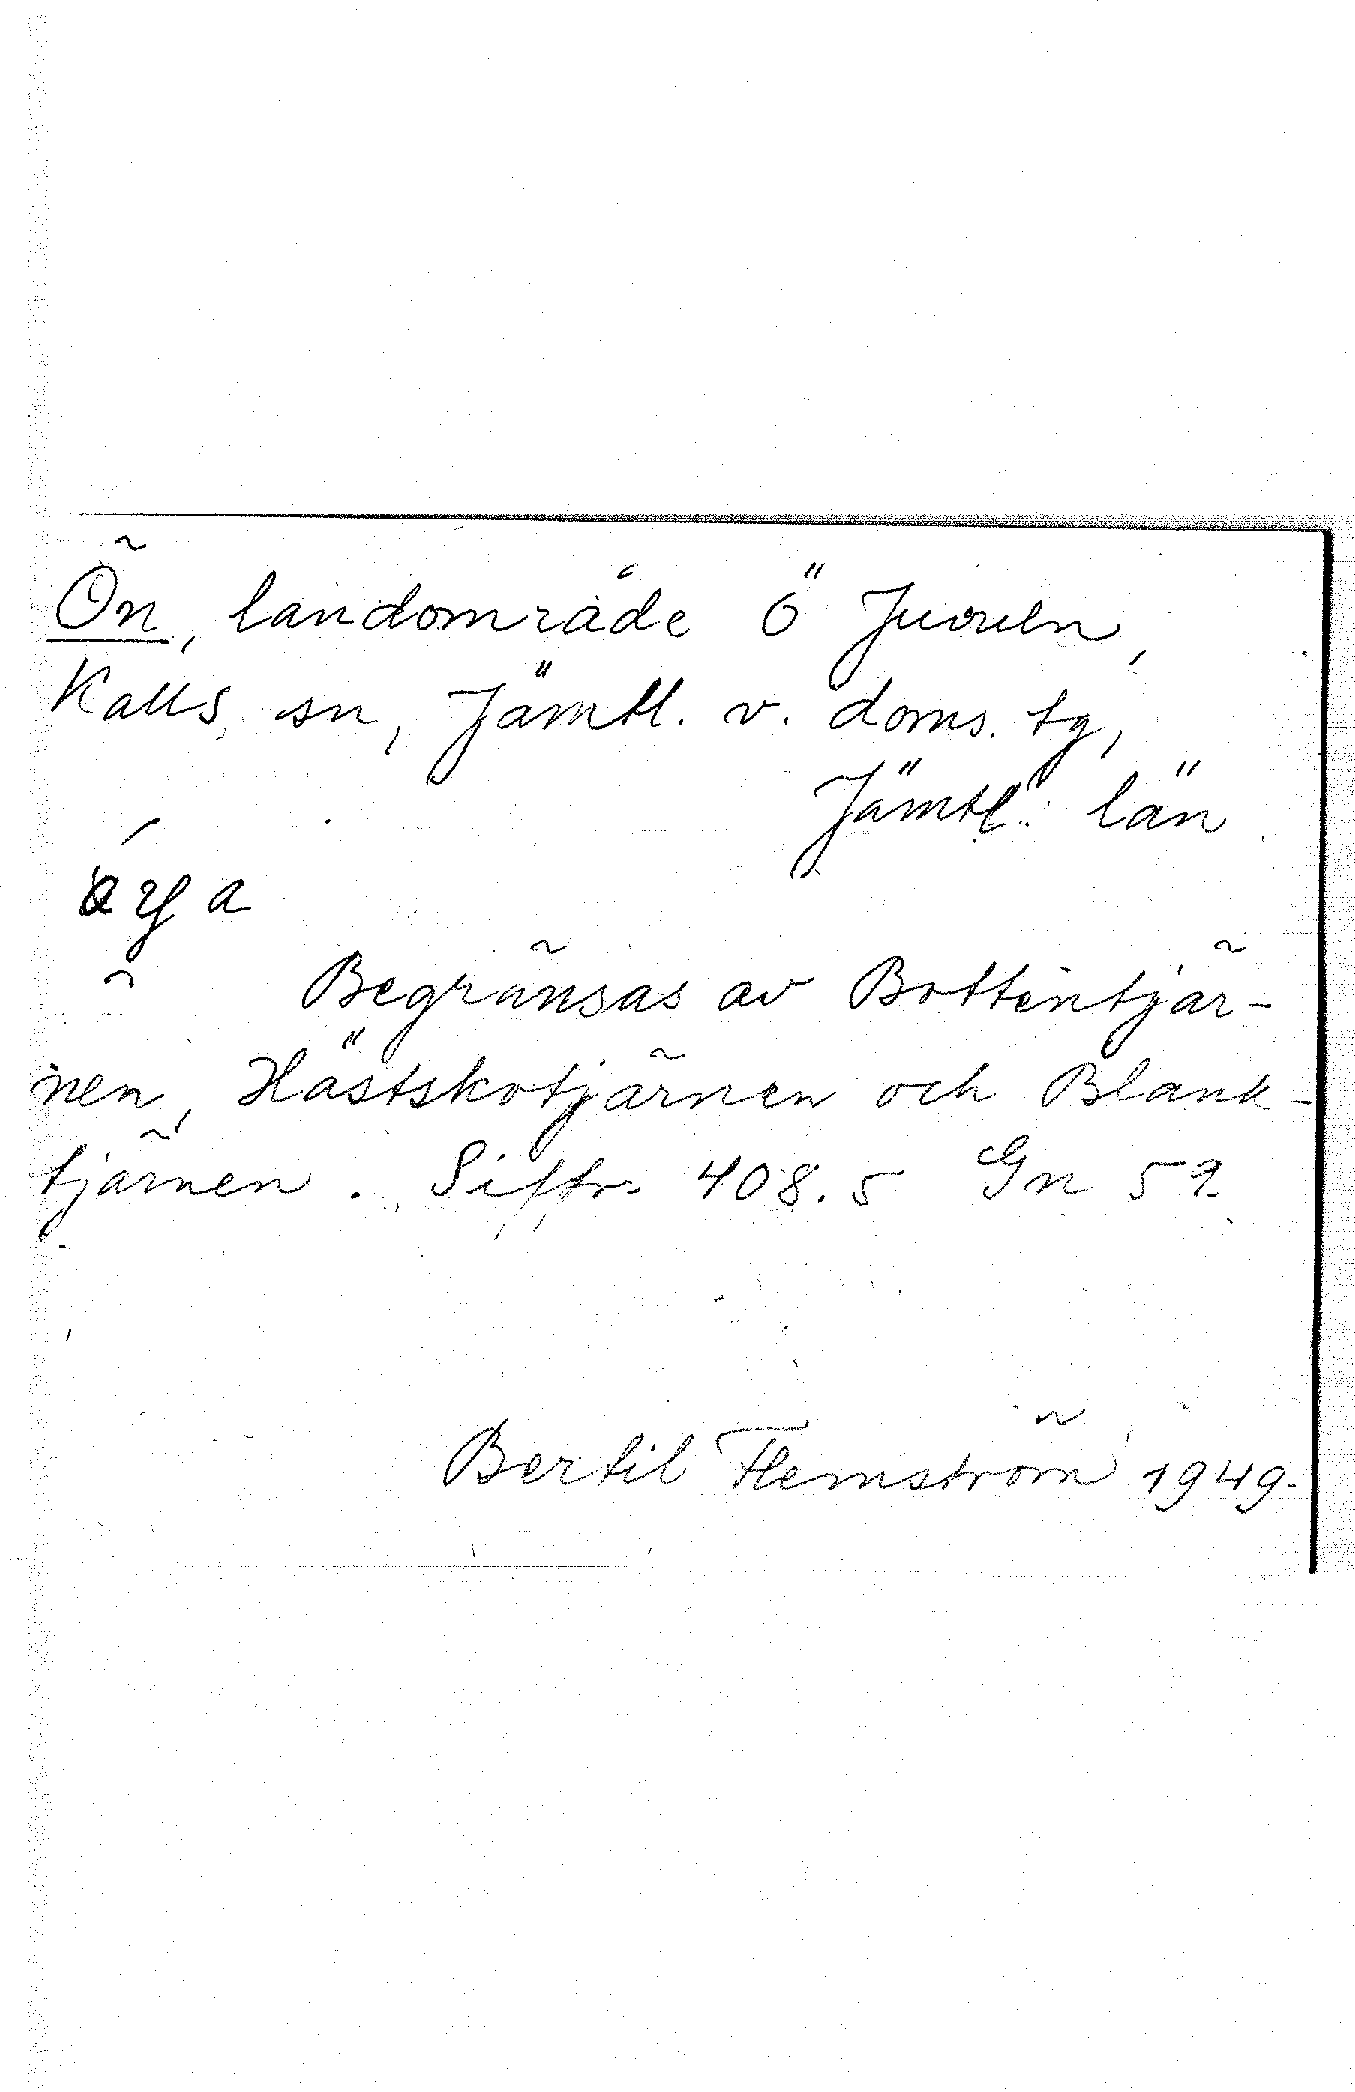 Ön, landområde Ö Juveln,
Kalls sn, Jämtl. v. doms. tg,
Jämtl. län
Begränsas av Bottentjär-
nen, Hästskotjärnen och Blank-
tjärnen. Siffr. 408.5 Gn 59.
Bertil Flemström 1949.